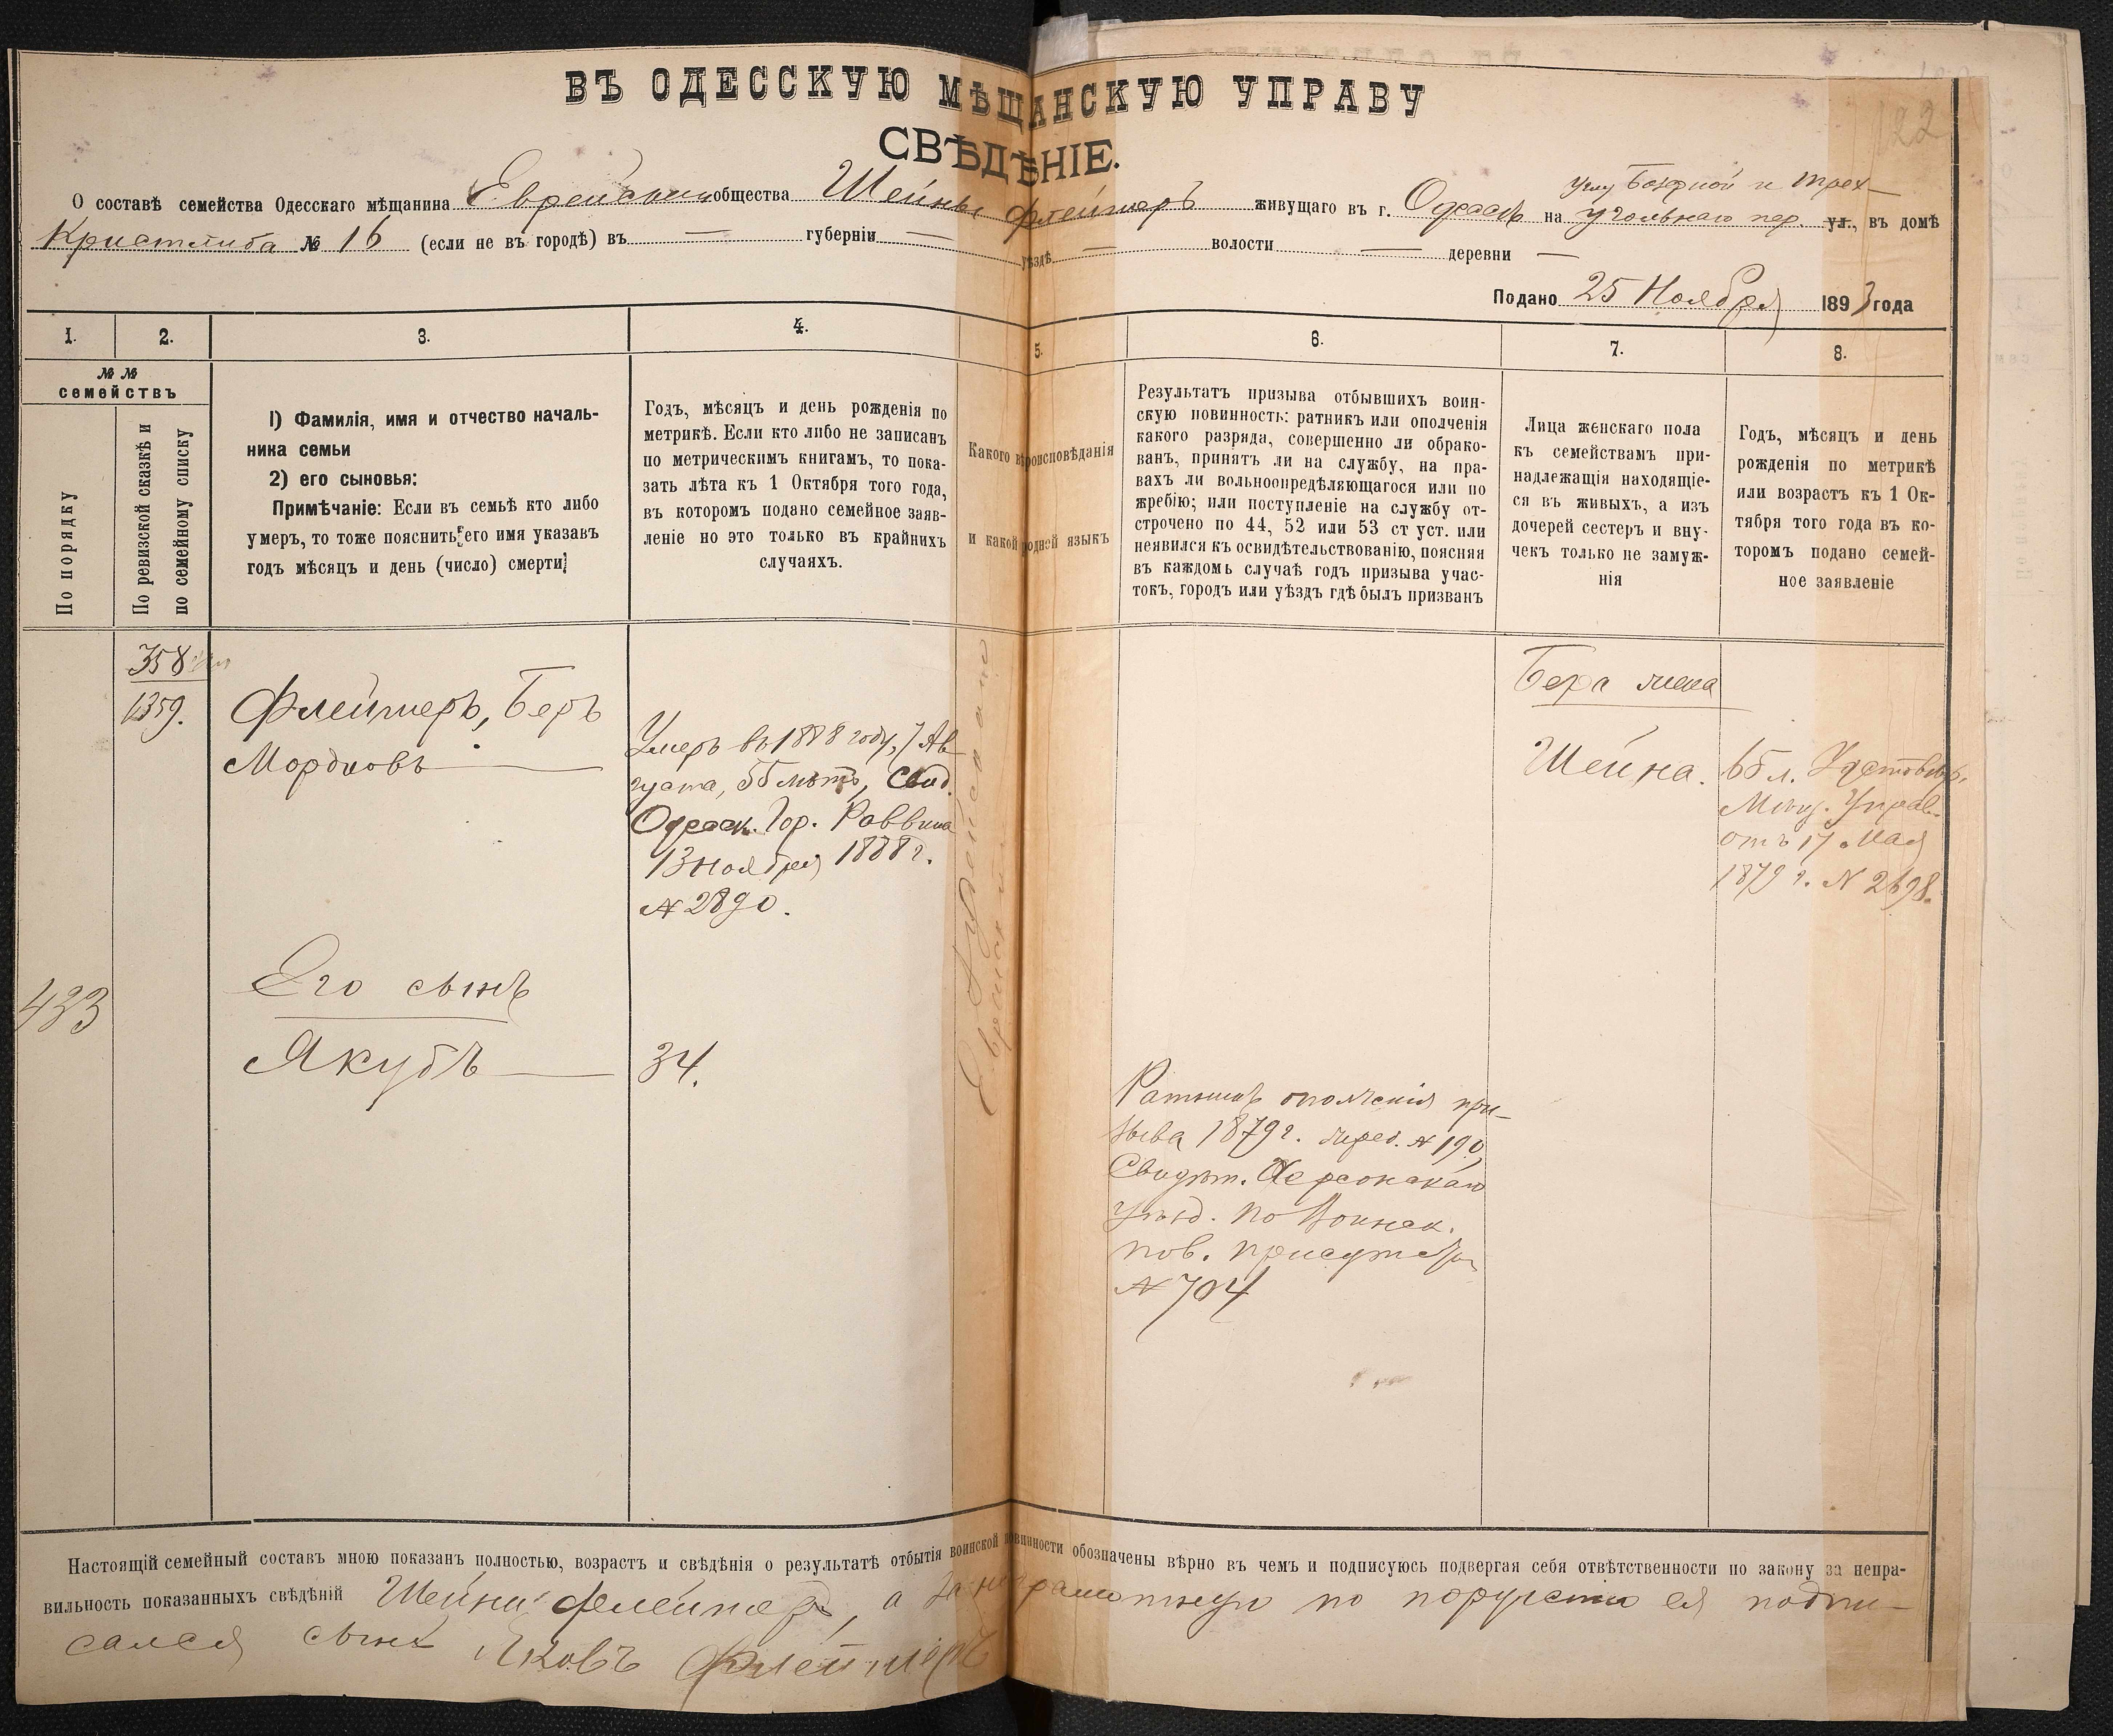 ВЪ ОДЕССКУЮ МѢЩАНСКУЮ УПРАВУ
СВѢДѢНІЕ.
О составѣ семейства Одесскаго мѣщанина Еврейскаго общества Шейны Флейшеръ живущаго въ г. Одессѣ на углу Базарной и Трех-
угольнаго пер. ул., въ домѣ
Кристлиба № 16 (если не въ городѣ) въ — губерніи — уѣздѣ — волости — деревни —
Подано 25 Ноября 1893 года
1. 2. 3. 4. 5. 6. 7. 8.
№ №
семействъ
По порядку
По ревизской сказкѣ и
по семейному списку
1) Фамилія, имя и отчество началь-
ника семьи
2) его сыновья:
Примѣчаніе: Если въ семьѣ кто либо
умеръ, то тоже пояснить его имя указавъ
годъ мѣсяцъ и день (число) смерти
Годъ, мѣсяцъ и день рожденія по
метрикѣ. Если кто либо не записанъ
по метрическимъ книгамъ, то пока-
зать лѣта къ 1 Октября того года,
въ которомъ подано семейное заяв-
леніе но это только въ крайнихъ
случаяхъ.
Какого вѣроисповѣданія
и какой родней языкъ
Результатъ призыва отбывшихъ воин-
скую повинность: ратникъ или ополченія
какого разряда, совершенно ли обрако-
ванъ, принятъ ли на службу, на пра-
вахъ ли вольноопредѣляющагося или по
жребію; или поступленіе на службу от-
строчено по 44, 52 или 53 ст уст. или
неявился къ освидѣтельствованію, поясняя
въ каждомъ случаѣ годъ призыва учас-
токъ, городъ или уѣздъ гдѣ былъ призванъ
Лица женскаго пола
къ семействамъ при-
надлежащія находящіе-
ся въ живыхъ, а изъ
дочерей сестеръ и вну-
чекъ только не замуж-
нія
Годъ, мѣсяцъ и день
рожденія по метрикѣ
или возрастъ къ 1 Ок-
тября того года въ ко-
торомъ подано семей-
ное заявленіе
358
1359.
Флейшеръ, Беръ
Мордковъ —
Умеръ въ 1888 году, 7 Ав-
густа, 55 лѣтъ, Свид.
Одесск. Гор. Раввина
13 ноября 1888 г.
№ 2890.
Іудейскаго
Еврейскій
Бера жена
Шейна.
65 л. Удостовѣр.
Мѣщ. Управ.
отъ 17 Мая
1879 г. № 2698.
433
Его сынъ
Якубъ —
34.
Ратникъ ополченія при-
зыва 1879 г. жреб. № 190,
Свидѣт. Херсонскаго
уѣзд. по Воинск.
пов. присутствія
№ 704
Настоящій семейный составъ мною показанъ полностью, возрастъ и свѣдѣнія о результатѣ отбытія воинской повинности обозначены вѣрно въ чемъ и подписуюсь подвергая себя отвѣтственности по закону за непра-
вильность показанныхъ свѣдѣній Шейна Флейшеръ, а за неграмотную по порученію ея подпи-
сался сынъ Яковъ Флейшеръ
122